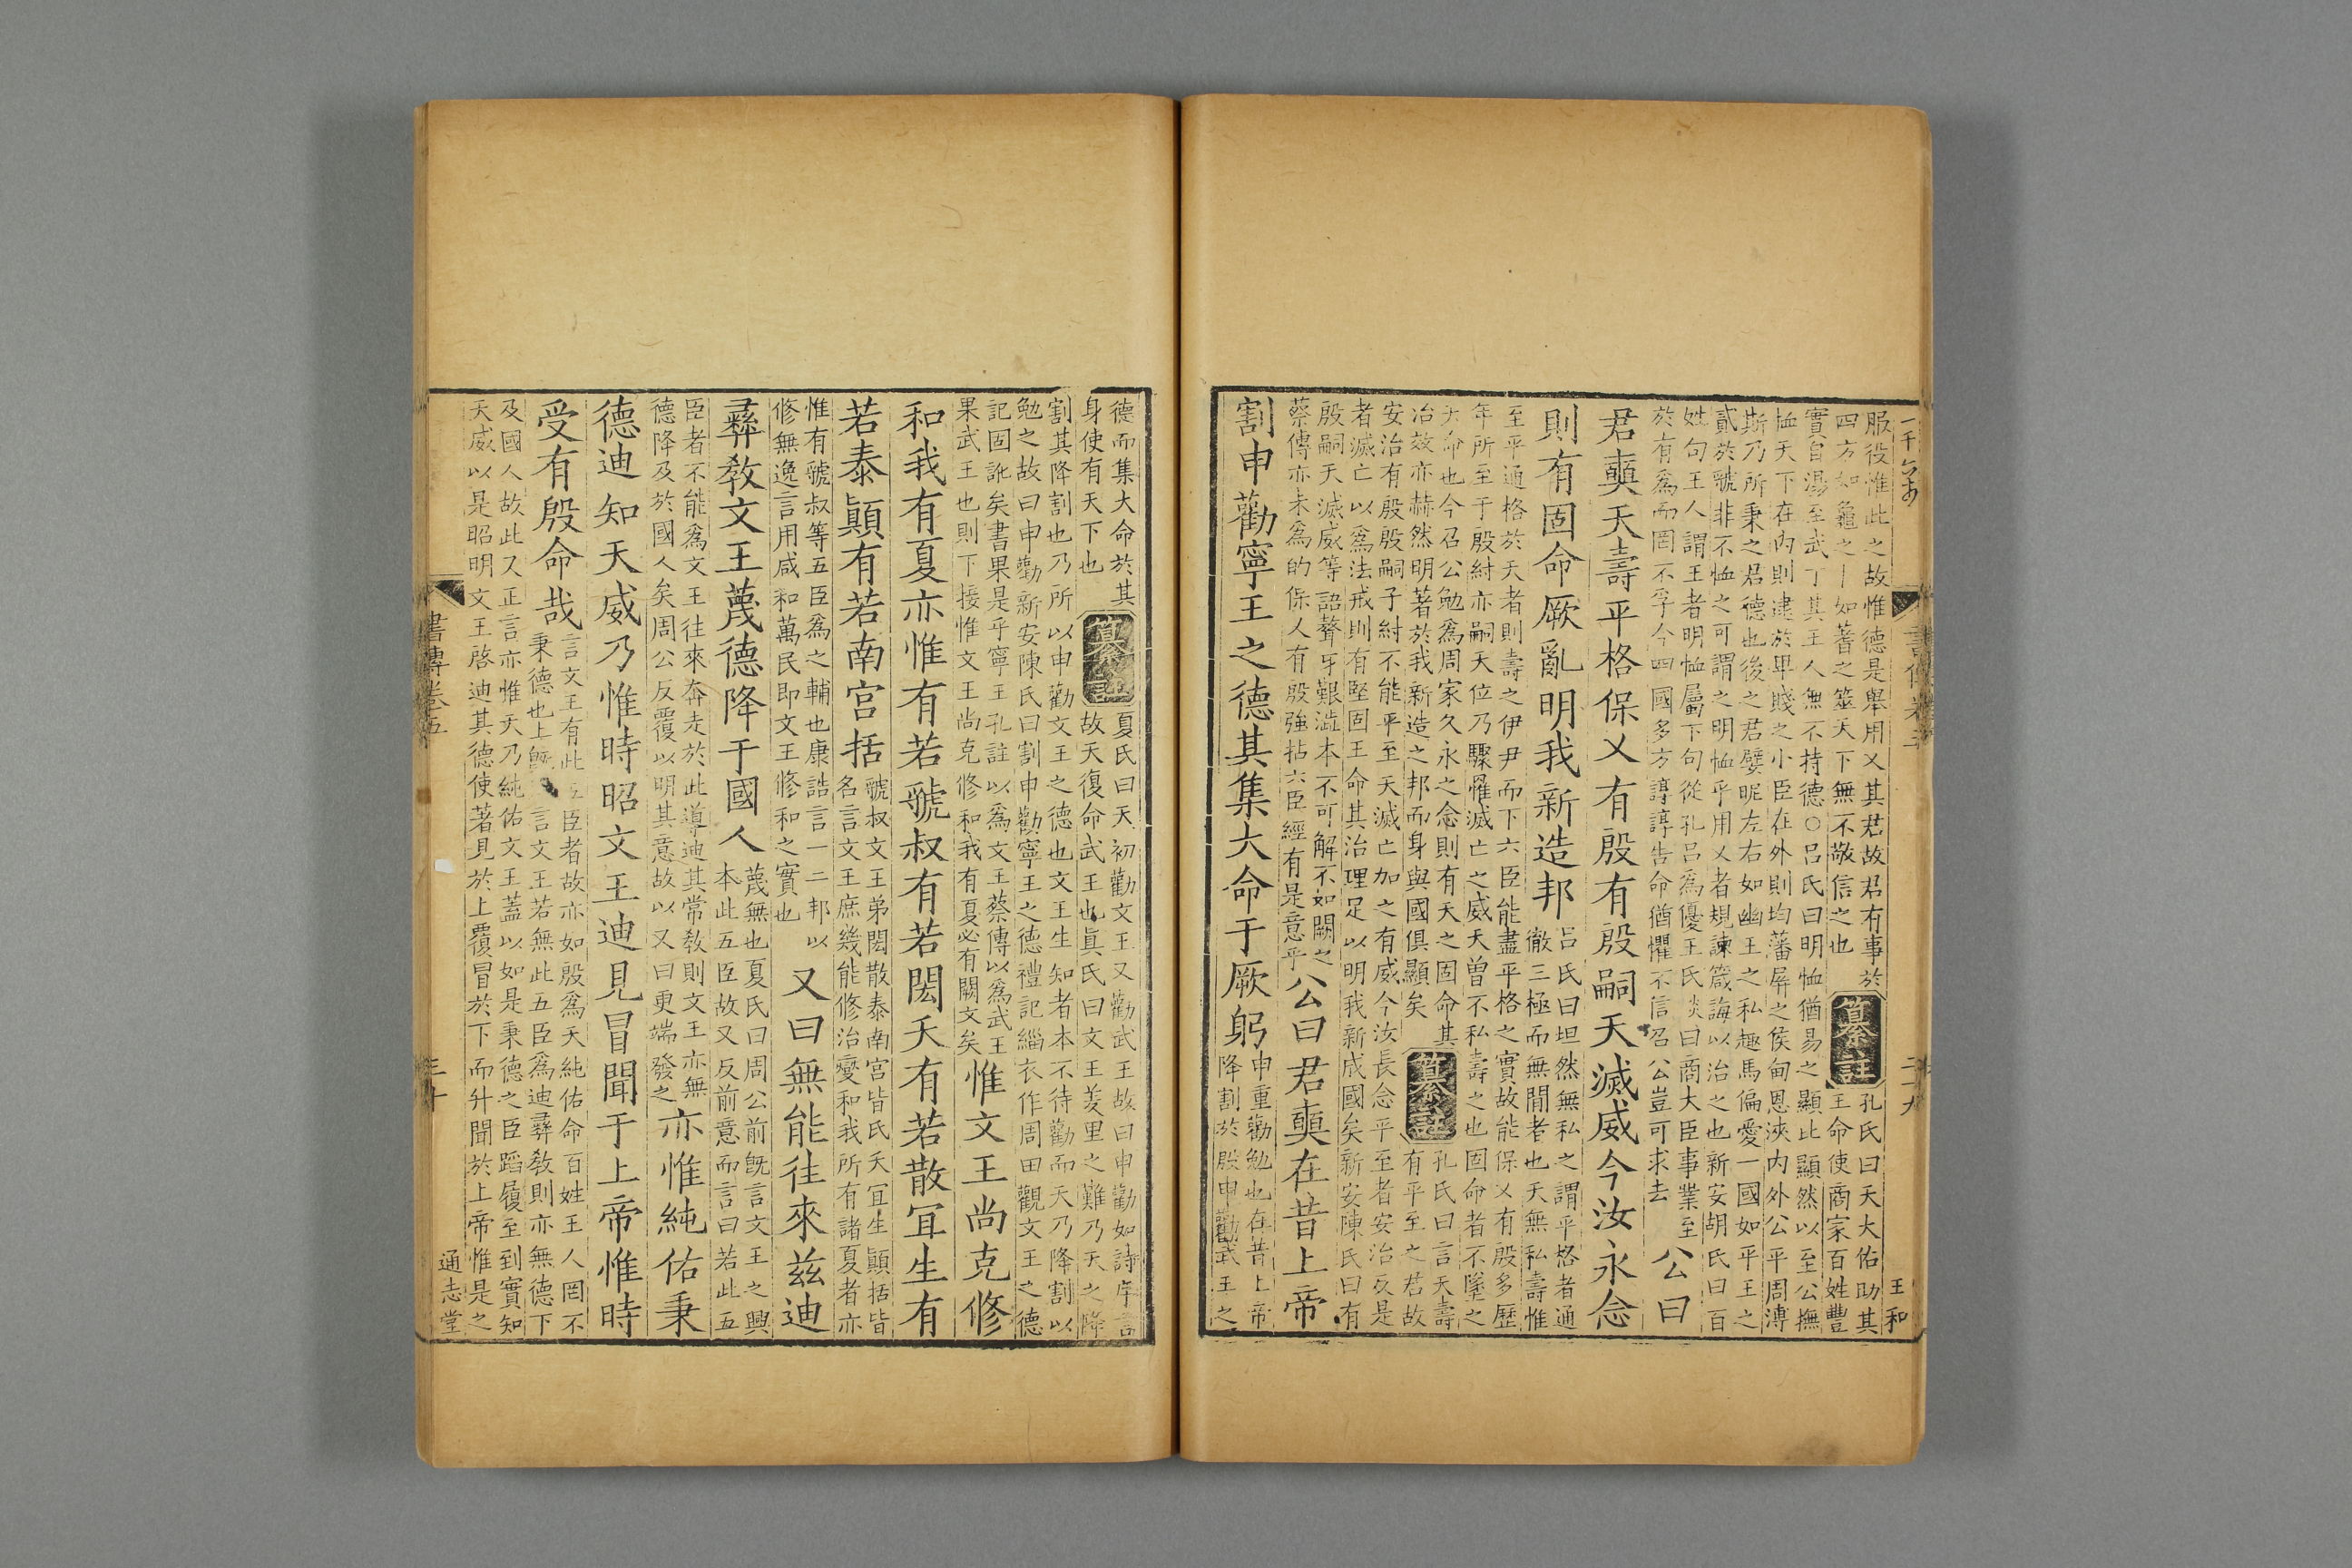 服役惟此之故惟德是舉用乂其君故君有事於
四方如龜之卜如蓍之筮天下無不敬信之也
纂註
孔氏曰天大佑助其
王命使商家百姓豐
實自湯至武丁其王人無不持德○呂氏曰明恤猶易之顯此顯然以至公撫
恤天下在內則逮於畢賤之小臣在外則均藩屏之侯甸恩浹內外公平周溥
斯乃所秉之君德也後之君嬖昵左右如幽王之私趣馬偏愛一國如平王之
貳於虢非不恤之可謂之明恤乎用乂者規諫箴誨以治之也新安胡氏曰百
姓句王人謂王者明恤屬下句從孔呂爲優王氏炎曰商大臣事業至
於有爲而罔不孚今四國多方諄諄告命猶懼不信召公豈可求去
公曰
君奭天壽平格保乂有殷有殷嗣天滅威今汝永念
則有固命厥亂明我新造邦
呂氏曰坦然無私之謂平格者通
徹三極而無間者也天無私壽惟
至平通格於天者則壽之伊尹而下六臣能盡平格之實故能保乂有殷多歷
年所至于殷紂亦嗣天位乃驟罹滅亡之威天曾不私壽之也固命者不墜之
大命也今召公勉爲周家久永之念則有天之固命其
治效亦赫然明著於我新造之邦而身與國俱顯矣
纂註
孔氏曰言天壽
有平至之君故
安治有殷殷嗣子紂不能平至天滅亡加之有威今汝長念平至者安治反是
者滅亡以爲法戒則有堅固王命其治理足以明我新成國矣新安陳氏曰有
殷嗣天滅威等語聱牙艱澁本不可解不如闕之
蔡傳亦未爲的保人有殷強拈六臣經有是意乎
公曰君奭在昔上帝
割申勸寧王之德其集大命于厥躬
申重勸勉也在昔上帝
降割於殷申勸武王之
書傳卷五
二十九
王和
德而集大命於其
身使有天下也
纂註
夏氏曰天初勸文王又勸武王故曰申勸如詩序言
故天復命武王也眞氏曰文王羑里之難乃天之降
割其降割也乃所以申勸文王之德也文王生知者本不待勸而天乃降割以
勉之故曰申勸新安陳氏曰割申勸寧王之德禮記緇衣作周田觀文王之德
記固訛矣書果是乎寧王孔註以爲文王蔡傳以爲武王
果武王也則下接惟文王尚克修和我有夏必有闕文矣
惟文王尚克修
和我有夏亦惟有若虢叔有若閎夭有若散宜生有
若泰顚有若南宮括
虢叔文王弟閎散泰南宮皆氏夭宜生顚括皆
名言文王庶幾能修治燮和我所有諸夏者亦
惟有虢叔等五臣爲之輔也康誥言一二邦以
修無逸言用咸和萬民即文王修和之實也
又曰無能往來兹迪
彝敎文王蔑德降于國人
蔑無也夏氏曰周公前旣言文王之興
本此五臣故又反前意而言曰若此五
臣者不能爲文王往來奔走於此導迪其常敎則文王亦無
德降及於國人矣周公反覆以明其意故以又曰更端發之
亦惟純佑秉
德迪知天威乃惟時昭文王迪見冒聞于上帝惟時
受有殷命哉
言文王有此五臣者故亦如殷爲天純佑命百姓王人罔不
秉德也上旣言文王若無此五臣爲迪彝敎則亦無德下
及國人故此又正言亦惟天乃純佑文王蓋以如是秉德之臣蹈履至到實知
天威以是昭明文王啓迪其德使著見於上覆冒於下而升聞於上帝惟是之
書傳卷五
三十
通志堂